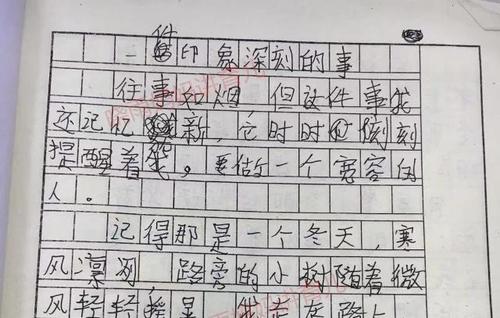 一件印象深刻的事
往事如烟 但这件事我
还记忆 新，它时时 刻刻
提醒着我。要做一个宽容的
人。
记得那是一个冬天，寒
风凛冽，路旁的小树随着微
风轻轻摇晃 我走在路上